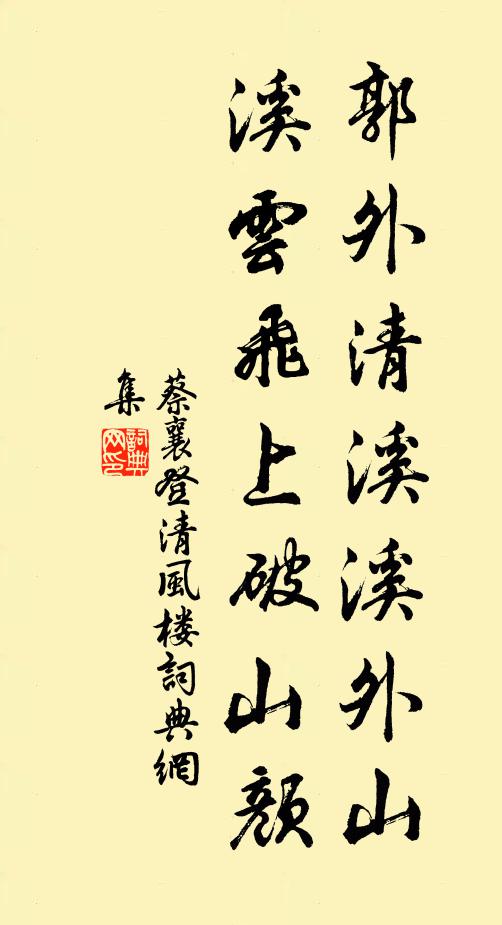 郭外清溪溪外山
溪雲飛上破山顏
蔡襄登清風楼詞典網
集
詞典
网印